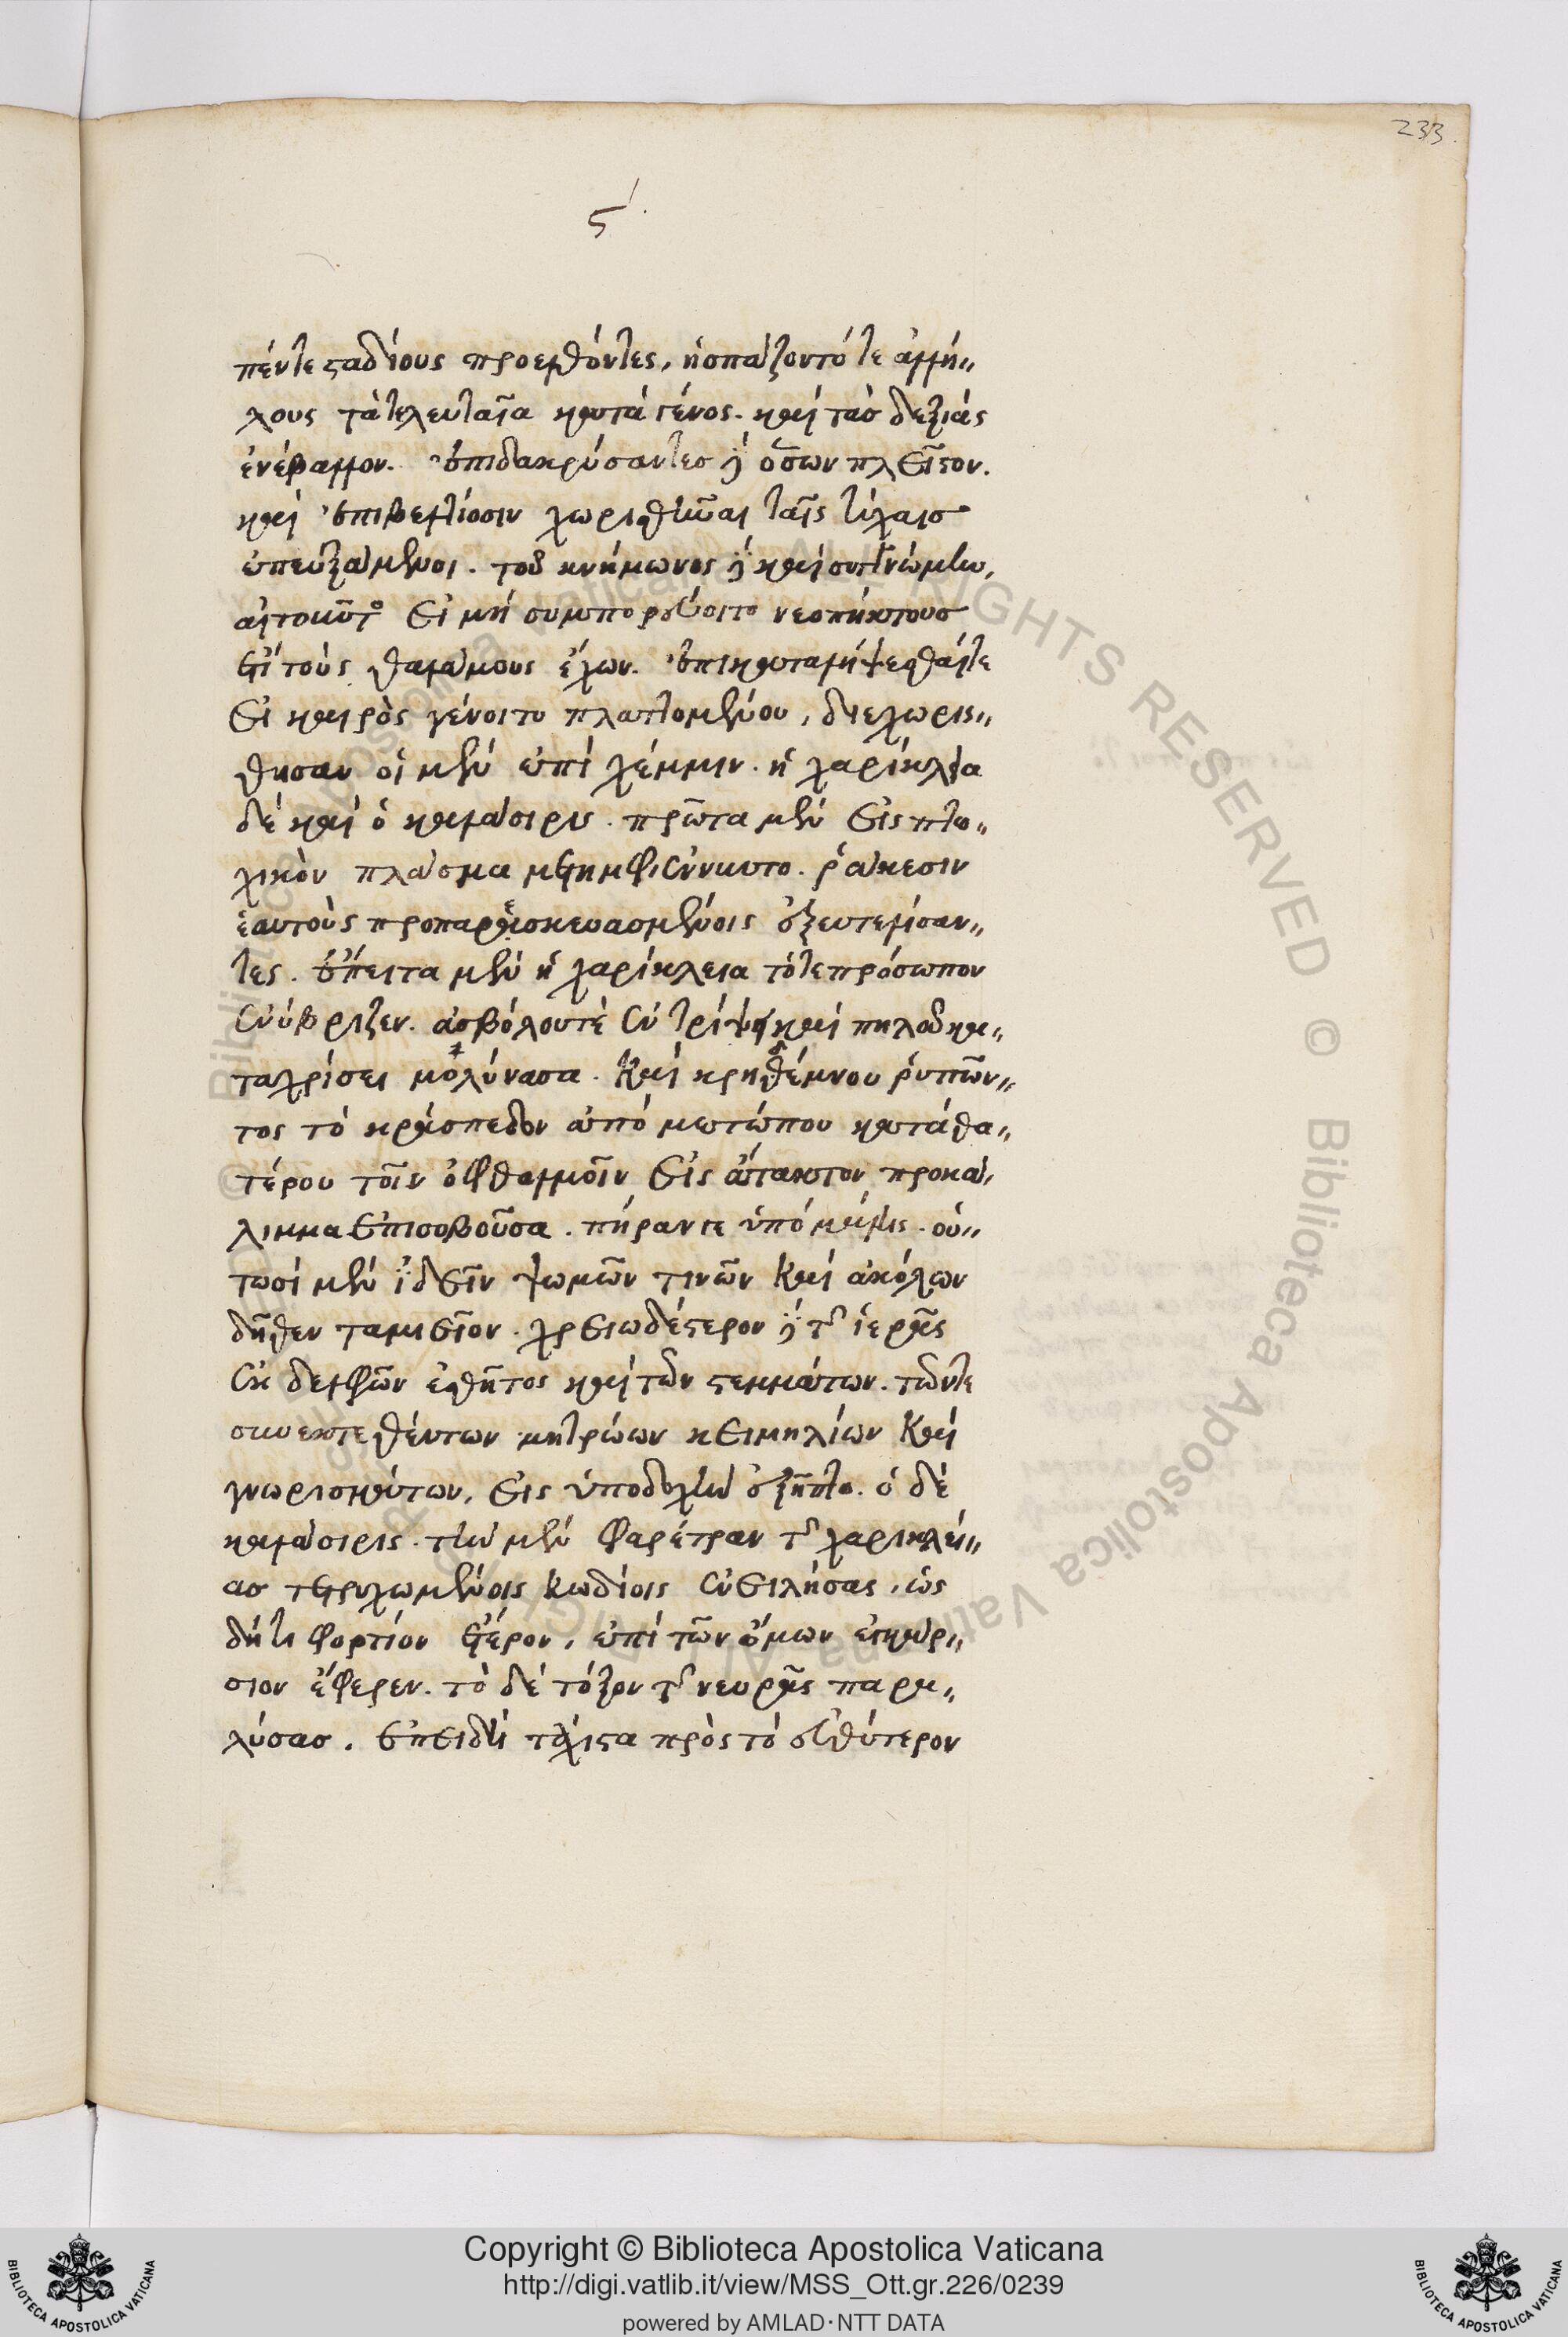 233
ς΄.
πέντε σταδίους προελθόντες, ἠσπάζοντό τε ἀλλή„
λους τὰ τελευταῖα κατὰ γένος. καὶ τὰς δεξιὰς
ἐνέβαλλον. ἐπιδακρύσαντες δ' ὅσων πλεῖστον.
καὶ ἐπὶ βελτίοσιν χωρισθῆναι ταῖς τύχαις
ἐπευξάμενοι. τοῦ κνήμωνος δὲ καὶ συγγνώμην,
αἰτοῦντος εἰ μὴ συμπορεύοιτο νεοπήκτους
ἔτι τοὺς θαλάμους ἔχων. ἐπικαταλήψεσθαί τε
εἰ καιρὸς γένοιτο πλαττομένου, διεχωρίσ„
θησαν οἱ μὲν ἐπὶ χέμμιν. ἡ χαρίκλεια
δὲ καὶ ὁ καλάσιρις. πρῶτα μὲν εἰς πτω„
χικὸν πλάσμα μετημφιέννυντο. ῥάκεσιν
ἑαυτοὺς προπαρεσκευασμένοις ἐξευτελίσαν„
τες. ἔπειτα μὲν ἡ χαρίκλεια τό τε πρόσωπον
ἐνύβριζεν. ἀσβόλου τὲ ἐντρίψει καὶ πηλοῦ κα„
ταχρίσει μολύνασα. καὶ κρηδέμνου ῥυπῶν„
τος τὸ κράσπεδον ἀπὸ μετώπου κατὰ θα„
τέρου τοῖν ὀφθαλμοῖν εἰς ἄτακτον προκά„
λυμμα ἐπισοβοῦσα. πήραν τε ὑπὸ μάλης. οὑ„
τωσὶ μὲν ἰδεῖν ψωμῶν τινῶν καὶ ἀκόλων
δῆθεν ταμιεῖον. χρειωδέστερον δὲ τῆς ἱερᾶς
ἐκ δελφῶν ἐσθῆτος καὶ τῶν στεμμάτων. τῶν τε
συνεκτεθέντων μητρώων κειμηλίων καὶ
γνωρισμάτων, εἰς ὑποδοχὴν ἐξῆπτο. ὁ δὲ
καλάσιρις. τὴν μὲν φαρέτραν τῆς χαρικλεί„
ας τετρυχωμένοις κωδίοις ἐνειλήσας, ὡς
δή τι φορτίον ἕτερον, ἐπὶ τῶν ὤμων ἐγκάρ„
σιον ἔφερεν. τὸ δὲ τόξον τῆς νευρᾶς παρα„
λύσας. ἐπειδὴ τάχιστα πρὸς τὸ εὐθύτερον
Copyright © Biblioteca Apostolica Vaticana
http://digi.vatlib.it/view/MSS_Ott.gr.226/0239
powered by AMLAD·NTT DATA